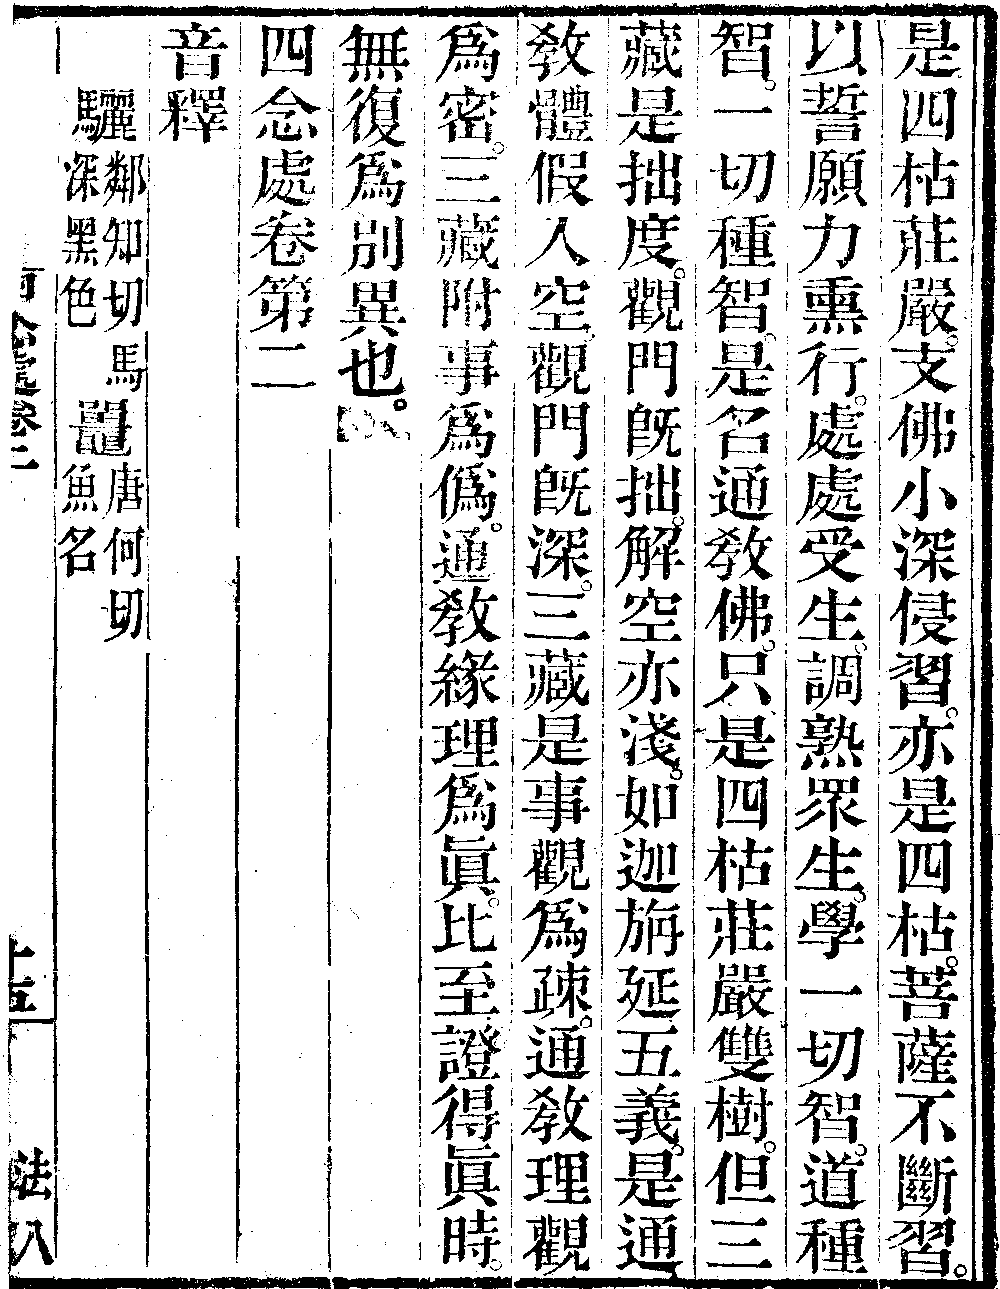 是四枯莊嚴。支佛小深侵習。亦是四枯。菩薩不斷習。
以誓願力熏行。處處受生。調熟眾生。學一切智。道種
智。一切種智。是名通教佛。只是四枯莊嚴雙樹。但三
藏是拙度。觀門既拙。解空亦淺。如迦旃延五義。是通
教體假入空。觀門既深。三藏是事觀為疎。通教理觀
為密。三藏附事為偽。通教緣理為眞。比至證得眞時。
無復為別異也。
四念處卷第二
音釋
驪鄰知切馬深黑色 鼉唐何切魚名
念處卷二 十五 法八